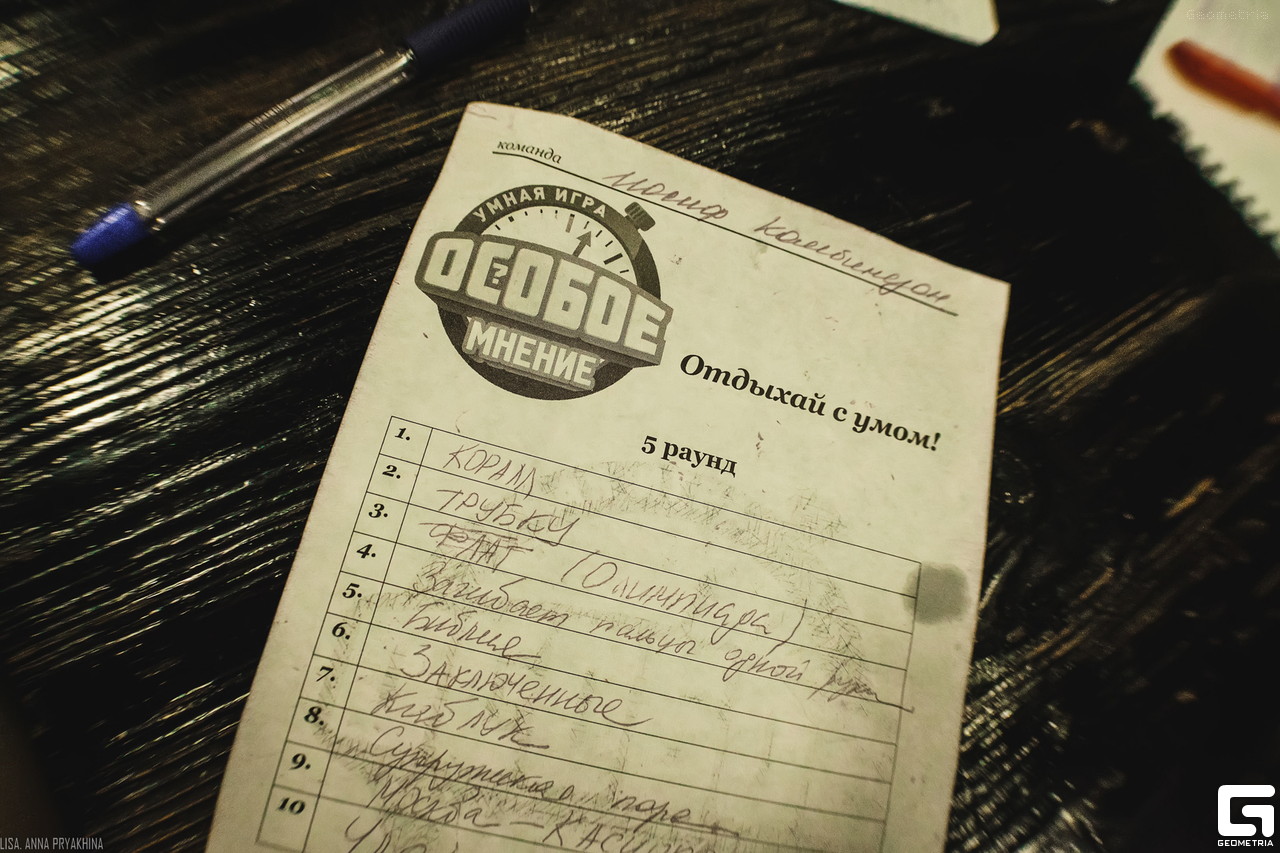 Geometria
команда Иосиф Комбинезон
УМНАЯ ИГРА
ОСОБОЕ
?
МНЕНИЕ
Отдыхай с умом!
5 раунд
1. КОРАЛЛ
2. ТРУБКУ
3. ФЛАГ (Олимпиада)
4. Загибает пальцы одной руки
5. Библия
6. Заключенные
7. Каблук
8. Супружеская пара
9. Москва -
10
LISA. ANNA PRYAKHINA
G
GEOMETRIA